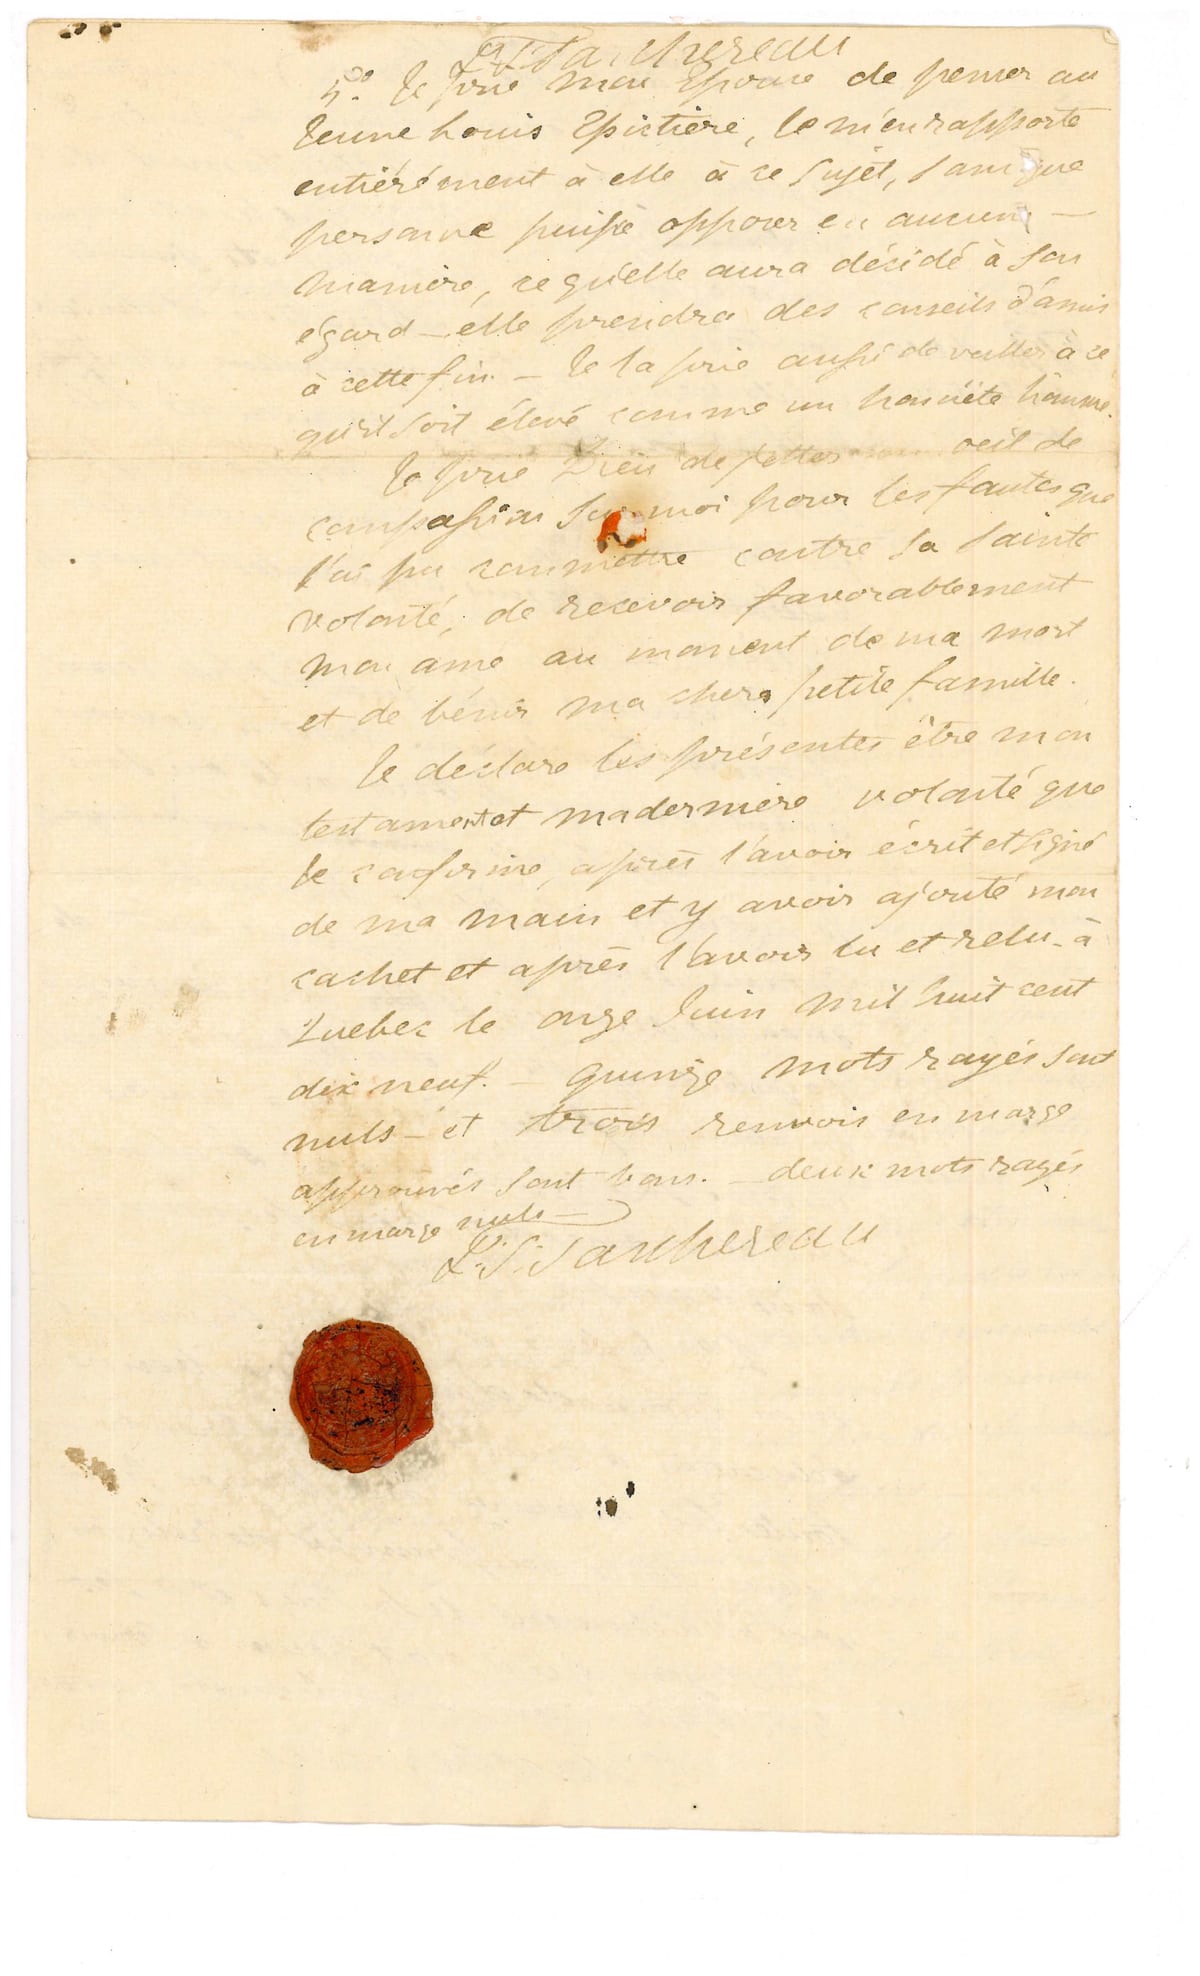 L. S. Taschereau
5o. Je prie mon Epouse de penser au
Jeune Louis Epictiere, Je m'en rapporte
entiérément à elle à ce sujet, sans que
personne puisse opposer en aucune —
maniere, ce qu'elle aura décidé à son
égard — elle prendra des conseils d'amis
à cette fin. — Je la prie aussi de veiller à ce
qu'il soit élevé comme un honnête homme.
Je prie Dieu de jetter oeil de
compassion sur moi pour les fautes que
j'ai pu commettre contre sa sainte
volonté, de recevoir favorablement
mon ame au moment de ma mort
et de bénir ma chere petite famille.
Je déclare les présentes être mon
testament et ma derniere volonté que
Je confirme, après l'avoir écrit et signé
de ma main et y avoir ajouté mon
cachet et après l'avoir lu et relu - à
Quebec le onze Juin mil huit cent
dix neuf. — quinze mots rayés sont
nuls — et trois renvois en marge
approuvés sont bons. — deux mots rayés
en marge nuls —
L. S. Taschereau